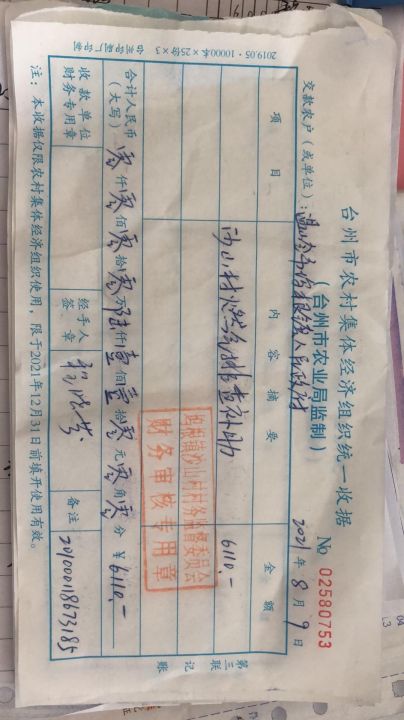 台州市农村集体经济组织统一收据
(台州市农业局监制)
№ 02580753
交款农户(或单位):温岭市坞根镇人民政府
2021年8月9日
项目 内容摘要 金额
沙山村燃气排查补助 6110.-
合计人民币(大写)零仟零佰零拾零万陆仟壹佰壹拾零元零角零分 ¥6110.-
收款单位财务专用章
经手人签章
备注:201000118673185
坞根镇沙山村村务监督委员会
财务审核专用章
第三联 记账
2019.05·10000本×25份×3
注:本收据仅限农村集体经济组织使用,限于2021年12月31日前填开使用有效。